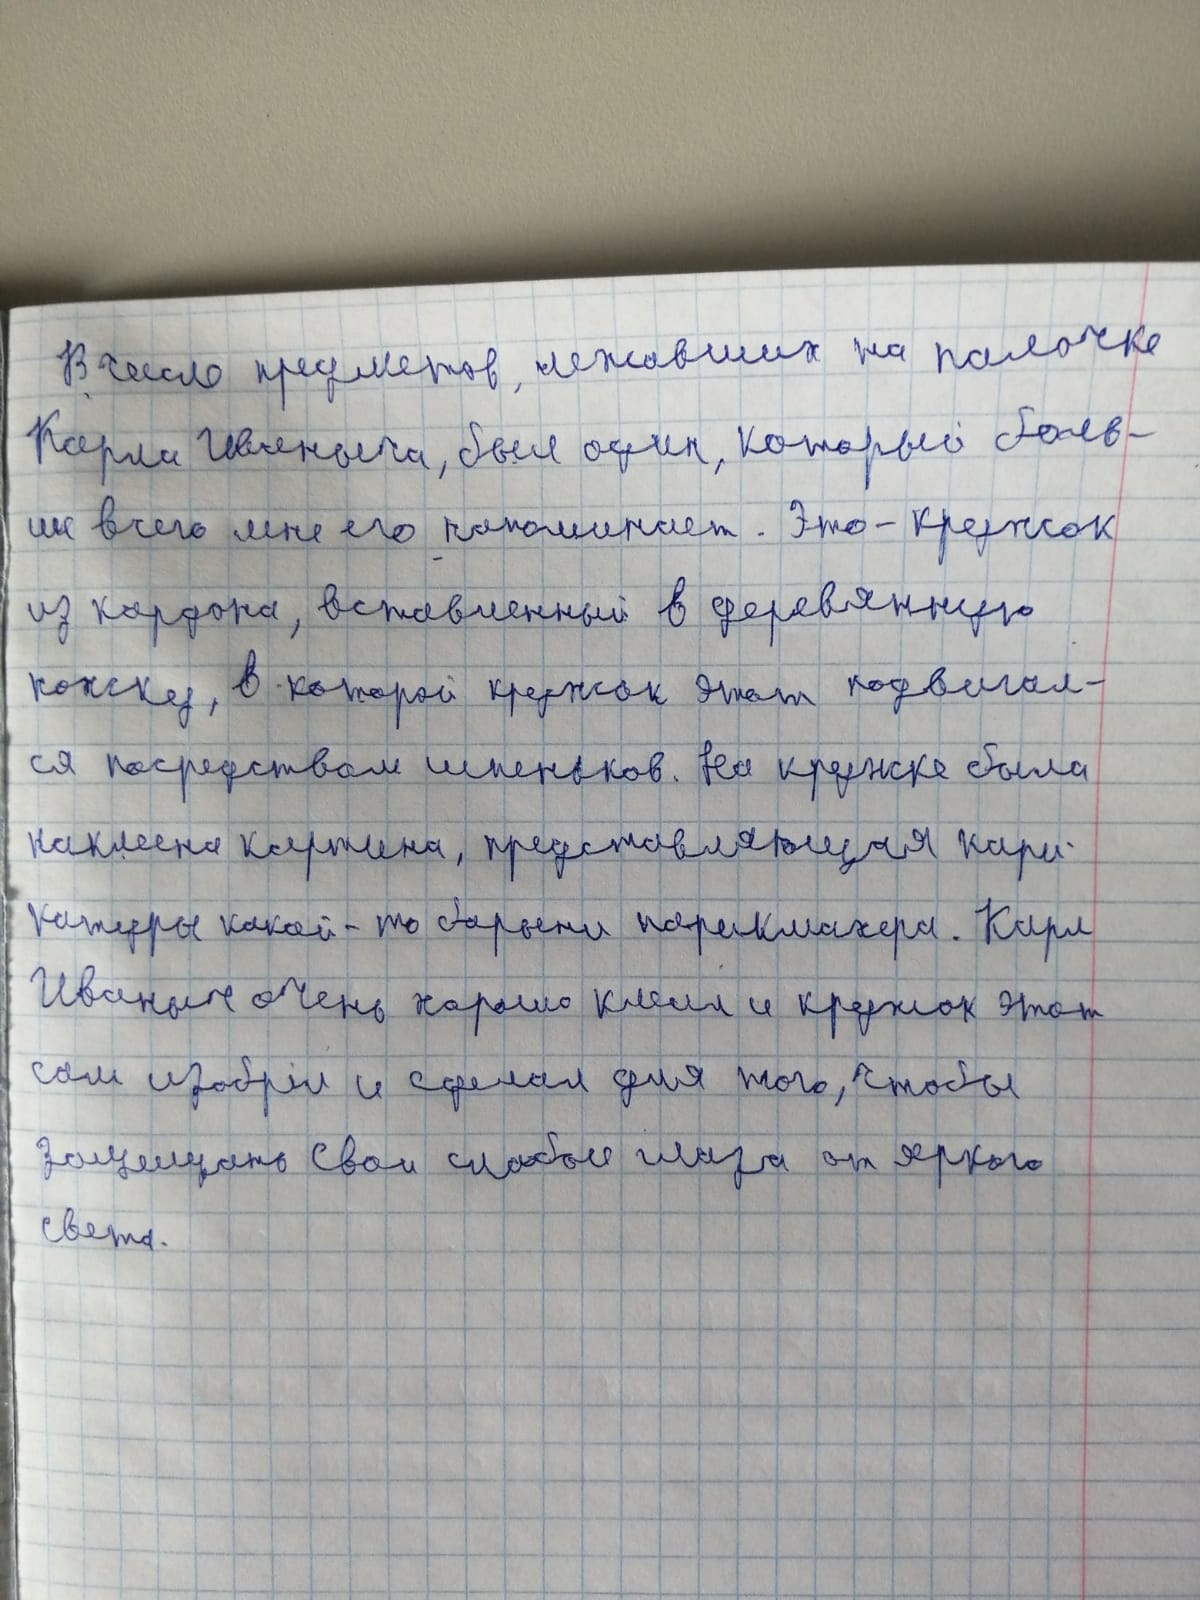 В число предметов, лежавших на палочке
Карла Иваныча, был один, который боль-
ше всего мне его напоминает. Это - кружок
из кардона, вставленный в деревянную
ножку, в которой кружок этот подвигал-
ся посредством шпеньков. На кружке была
наклеена картина, представляющая кари-
катуры какой-то барыни парикмахера. Карл
Иваныч очень хорошо клеил и кружок этот
сам изобрёл и сделал для того, чтобы
защищать свои слабые глаза от яркого
света.